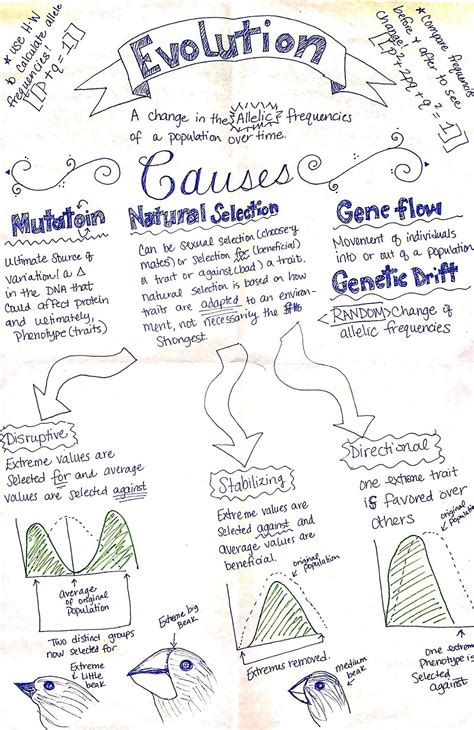 * use H-W
to calculate allele
frequencies!
[[p+q=1]]
Evolution
* Compare frequencies
before & after to see
change!
[p²+2pq+q²=1]
A change in the Allelic frequencies
of a population over time.
Causes
Mutatoin
Ultimate source of
variation! a Δ
in the DNA that
could affect protein
and ultimately,
Phenotype (traits)
Natural Selection
Can be sexual selection (choosey
mates) or selection for (beneficial)
a trait or against (bad) a trait.
natural selection is based on how
traits are adapted to an environ-
ment, not necessarily the
Strongest.
Gene flow
Movement of individuals
into or out of a population
Genetic Drift
RANDOM Change of
allelic frequencies
Disruptive
Extreme values are
selected for and average
values are selected against
Average
of original
Population
Two distinct groups
now selected for
Extreme
Little
beak
Extreme big
Beak
Stabilizing
Extreme values are
selected against and
average values are
beneficial.
original
population
Extremes removed.
medium
beak
Directional
one extreme trait
is favored over
others
original
population
one extreme
Phenotype is
selected
against